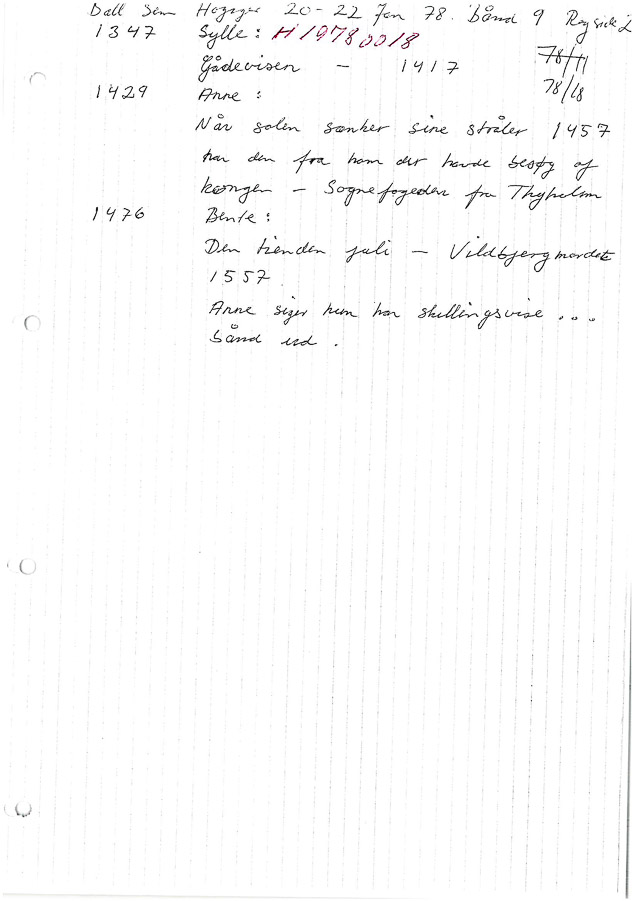 Ball Sem Hogager 20-22 Jan 78. bånd 9 Reg side 2
1347 Sylle: H19780018
Gådevisen - 1417 78/11
1429 Anne: 78/18
Når solen sænker sine stråler 1457
har den fra ham der havde besøg af
kongen - Sognefogeden fra Thyholm
1476 Bente:
Den tienden juli - Vildbjergmordet
1557
Anne siger hun har skillingsvise ...
bånd ud.